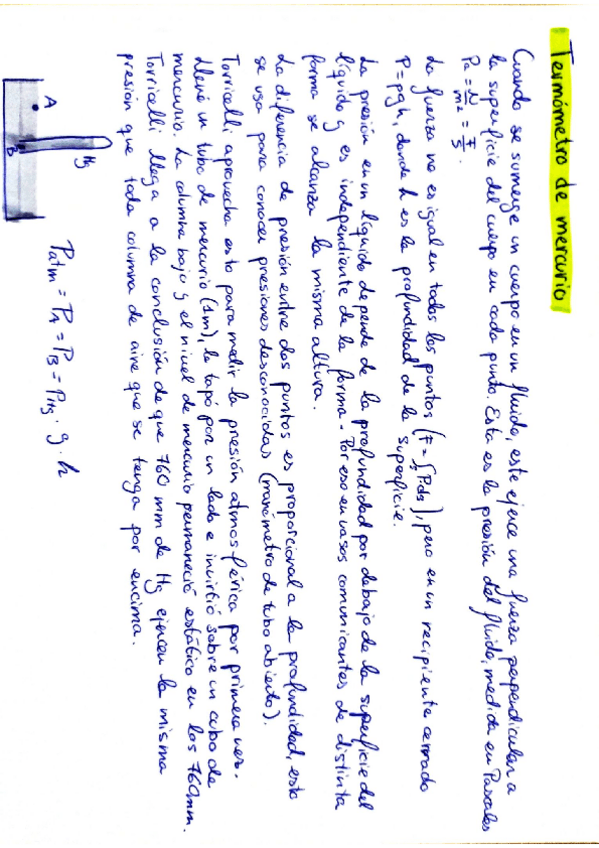 Termómetro de mercurio
Cuando se sumerge un cuerpo en un fluido, este ejerce una fuerza perpendicular a
la superficie del cuerpo en cada punto. Esta es la presión del fluido, medida en Pascales
Pa = N/m² = F/S.
La fuerza no es igual en todos los puntos (F = ∫ Pds), pero en un recipiente cerrado
P = ρgh, donde h es la profundidad de la superficie.
La presión en un líquido depende de la profundidad por debajo de la superficie del
líquido y es independiente de la forma. Por eso en vasos comunicantes de distinta
forma se alcanza la misma altura.
La diferencia de presión entre dos puntos es proporcional a la profundidad, esto
se usa para conocer presiones desconocidas (manómetro de tubo abierto).
Torricelli aprovecha esto para medir la presión atmosférica por primera vez.
Llenó un tubo de mercurio (1m), lo tapó por un lado e invirtió sobre un cubo de
mercurio. La columna bajó y el nivel de mercurio permaneció estático en los 760mm.
Torricelli llega a la conclusión de que 760 mm de Hg ejercen la misma
presión que toda columna de aire que se tenga por encima.
Hg
A
B
Patm = PA = PB = ρHg · g · h